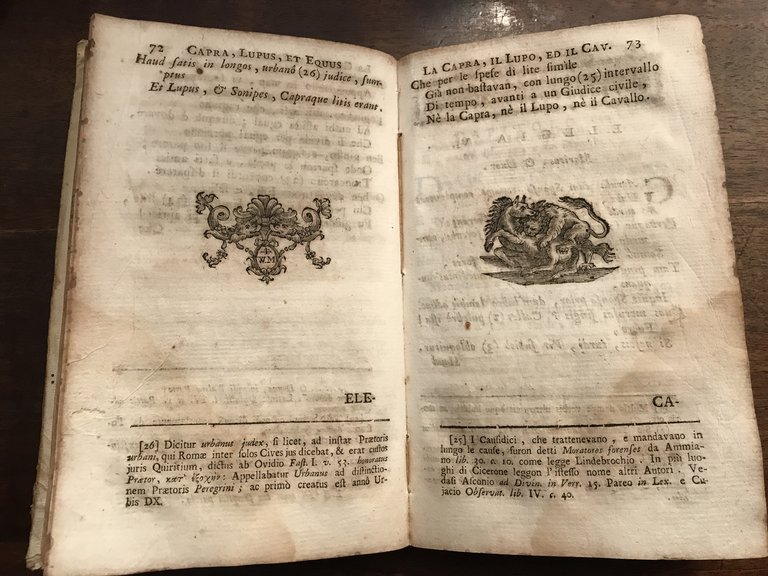 72 CAPRA, LUPUS, ET EQUUS
Haud satis in longos, urbanô (26) judice, sum-
ptus
Et Lupus, & Sonipes, Capraque litis erant.
W M
ELE-
[26] Dicitur urbanus judex, si licet, ad instar Prætoris
urbani, qui Romæ inter solos Cives jus dicebat, & erat custos
juris Quiritium, dictus ab Ovidio Fast. I. v. 53. honoratus
Prætor, κατ' ἐξοχὴν: Appellabatur Urbanus ad distinctio-
nem Prætoris Peregrini; ac primò creatus est annô Ur-
bis DX.
LA CAPRA, IL LUPO, ED IL CAV. 73
Che per le spese di lite simile
Già non bastavan, con lungo (25) intervallo
Di tempo, avanti a un Giudice civile,
Nè la Capra, nè il Lupo, nè il Cavallo.
CA-
[25] I Causidici, che trattenevano, e mandavano in
lungo le cause, furon detti Moratores forenses da Ammia-
no lib. 30. c. 10. come legge Lindebrochio. In più luo-
ghi di Cicerone leggon l'istesso nome altri Autori. Ve-
dasi Asconio ad Divin. in Verr. 15. Pareo in Lex. e Cu-
jacio Observat. lib. IV. c. 40.